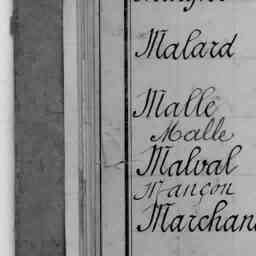 Malard
Malle
Malle
Malval
Mançon
Marchan